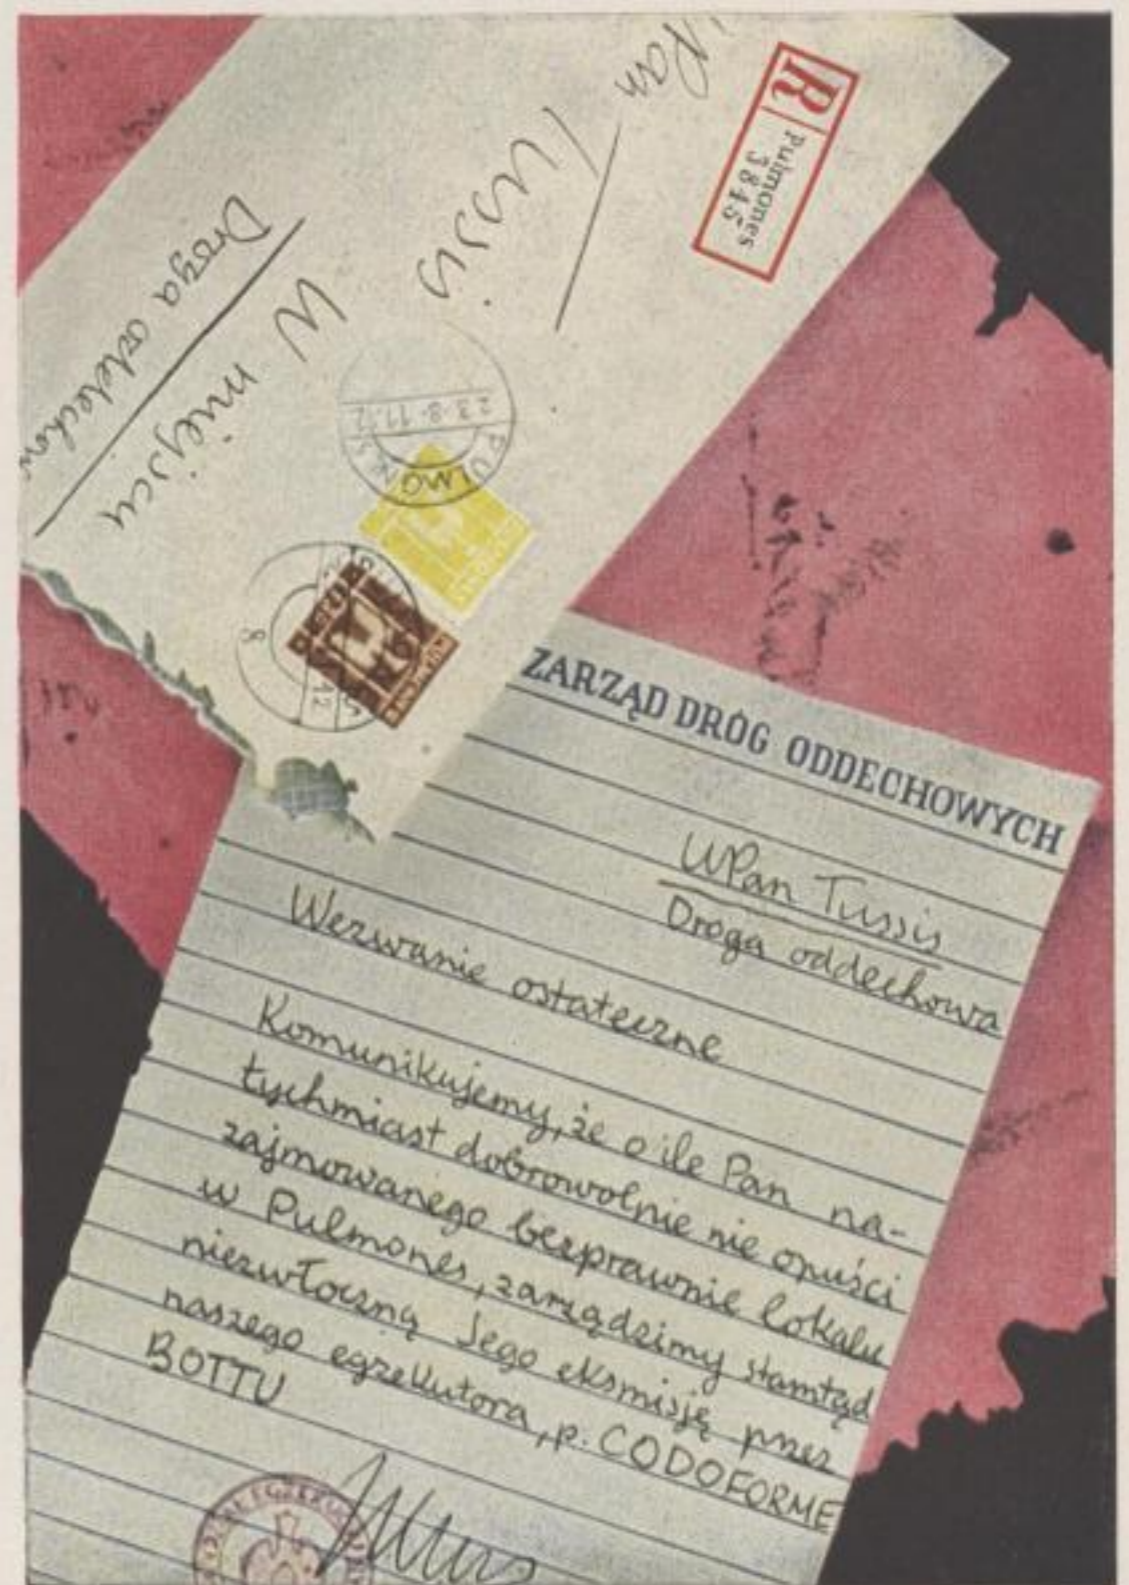 R
Pulmones
3845
Pan
Tussis
W miejscu
Droga oddechow
PULMONES
23-8-11-12
ZARZĄD DRÓG ODDECHOWYCH
WPan Tussis
Droga oddechowa
Wezwanie ostateczne
Komunikujemy, że o ile Pan na-
tychmiast dobrowolnie nie opuści
zajmowanego bezprawnie lokalu
w Pulmones, zarządzimy stamtąd
niezwłoczną Jego eksmisję przez
naszego egzekutora, p. CODOFORME
BOTTU